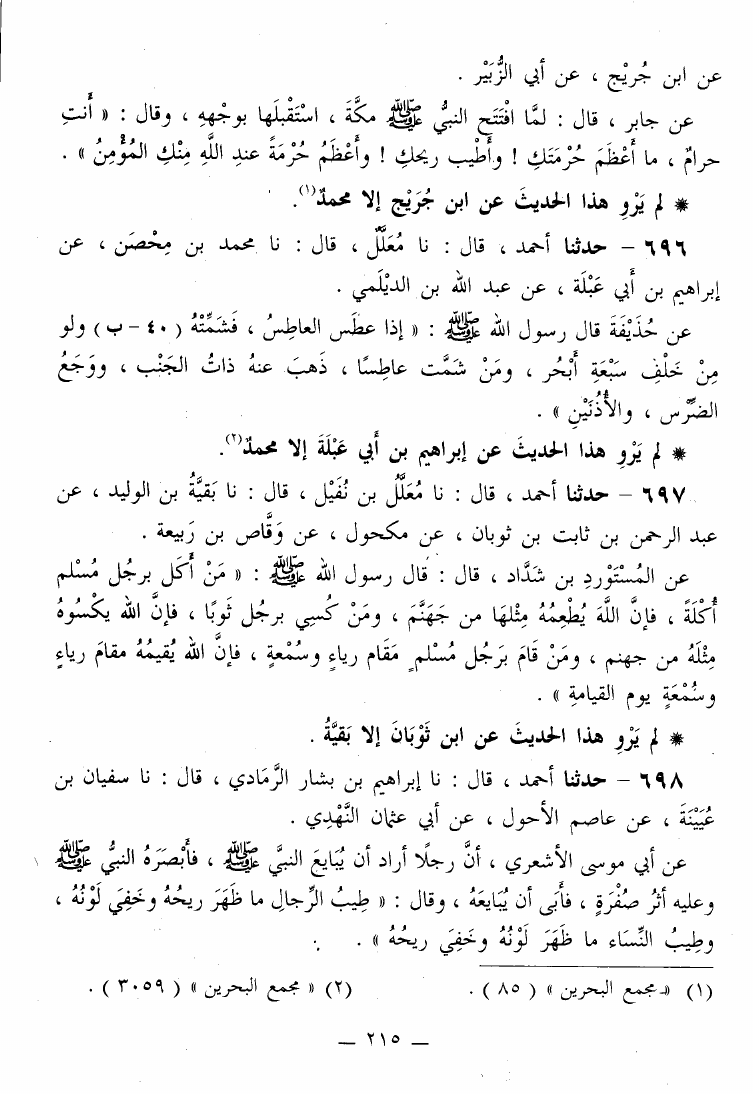 عن ابن جُرَيْج ، عن أبي الزُّبَيْر .
عن جابر ، قال : لمَّا افْتَتَح النبيُّ ﷺ مكَّةَ ، اسْتَقْبَلَها بوجْهِهِ ، وقال : « أَنتِ
حرامٌ ، ما أَعْظَمَ حُرْمَتَكِ ! وأَطْيب ريحكِ ! وأَعْظَمُ حُرْمَةً عندِ اللَّهِ مِنْكِ المُؤْمِنُ » .
* لم يَرْوِ هذا الحديثَ عن ابن جُرَيْج إلا محمدٌ(١).
٦٩٦ – حدثنا أحمد ، قال : نا مُعَلَّلٌ ، قال : نا محمد بن مِحْصَن ، عن
إبراهيم بن أبي عَبْلَة ، عن عبد الله بن الديْلَمي .
عن حُذَيْفَةَ قال رسول الله ﷺ : « إذا عطَس العاطِسُ ، فَشَمِّتْهُ ( ٤٠ – ب ) ولو
مِنْ خَلْفِ سَبْعَةِ أَبْحُر ، ومَنْ شَمَّت عاطِسًا ، ذَهبَ عنهُ ذاتُ الجَنْب ، ووَجَعُ
الضِّرْس ، والأُذُنَيْنِ » .
* لم يَرْوِ هذا الحديثَ عن إبراهيم بن أبي عَبْلَةَ إلا محمدٌ(٢).
٦٩٧ – حدثنا أحمد ، قال : نا مُعَلَّلُ بن نُفَيْل ، قال : نا بَقيَّةُ بن الوليد ، عن
عبد الرحمن بن ثابت بن ثوبان ، عن مكحول ، عن وَقَّاص بن رَبيعة .
عن المُسْتَوْردِ بن شدَّاد ، قال : قال رسول الله ﷺ : « مَنْ أَكَل برجُل مُسْلم
أُكْلَةً ، فإنَّ اللَّهَ يُطْعِمُهُ مِثْلَها من جَهَنَّمَ ، ومَنْ كُسِي برجُل ثَوبًا ، فإنَّ الله يكْسُوهُ
مِثْلَهُ من جهنم ، ومَنْ قَامَ بَرَجُل مُسْلمٍ مَقَام رياءٍ وسُمْعةٍ ، فإنَّ الله يُقيمُهُ مقامَ رياءٍ
وسُمْعَةٍ يوم القيامةِ » .
* لم يَرْوِ هذا الحديثَ عن ابن ثَوْبَانَ إلا بَقيَّةُ .
٦٩٨ – حدثنا أحمد ، قال : نا إبراهيم بن بشار الرَّمَادي ، قال : نا سفيان بن
عُيَيْنَةَ ، عن عاصم الأحول ، عن أبي عثمان النَّهْدِي .
عن أبي موسى الأشعري ، أنَّ رجلًا أراد أن يُبَايعَ النبيَّ ﷺ ، فأَبْصَرَهُ النبيُّ ﷺ
وعليه أثرُ صُفْرَةٍ ، فأَبَى أن يُبَايعَهُ ، وقال : « طِيبُ الرِّجالِ ما ظَهَرَ ريحُهُ وخَفِيَ لَوْنُهُ ،
وطِيبُ النِّسَاء ما ظَهَرَ لَوْنُهُ وخَفِيَ ريحُهُ » .
(١) « مجمع البحرين » ( ٨٥ ) . (٢) « مجمع البحرين » ( ٣٠٥٩ ) .
– ٢١٥ –